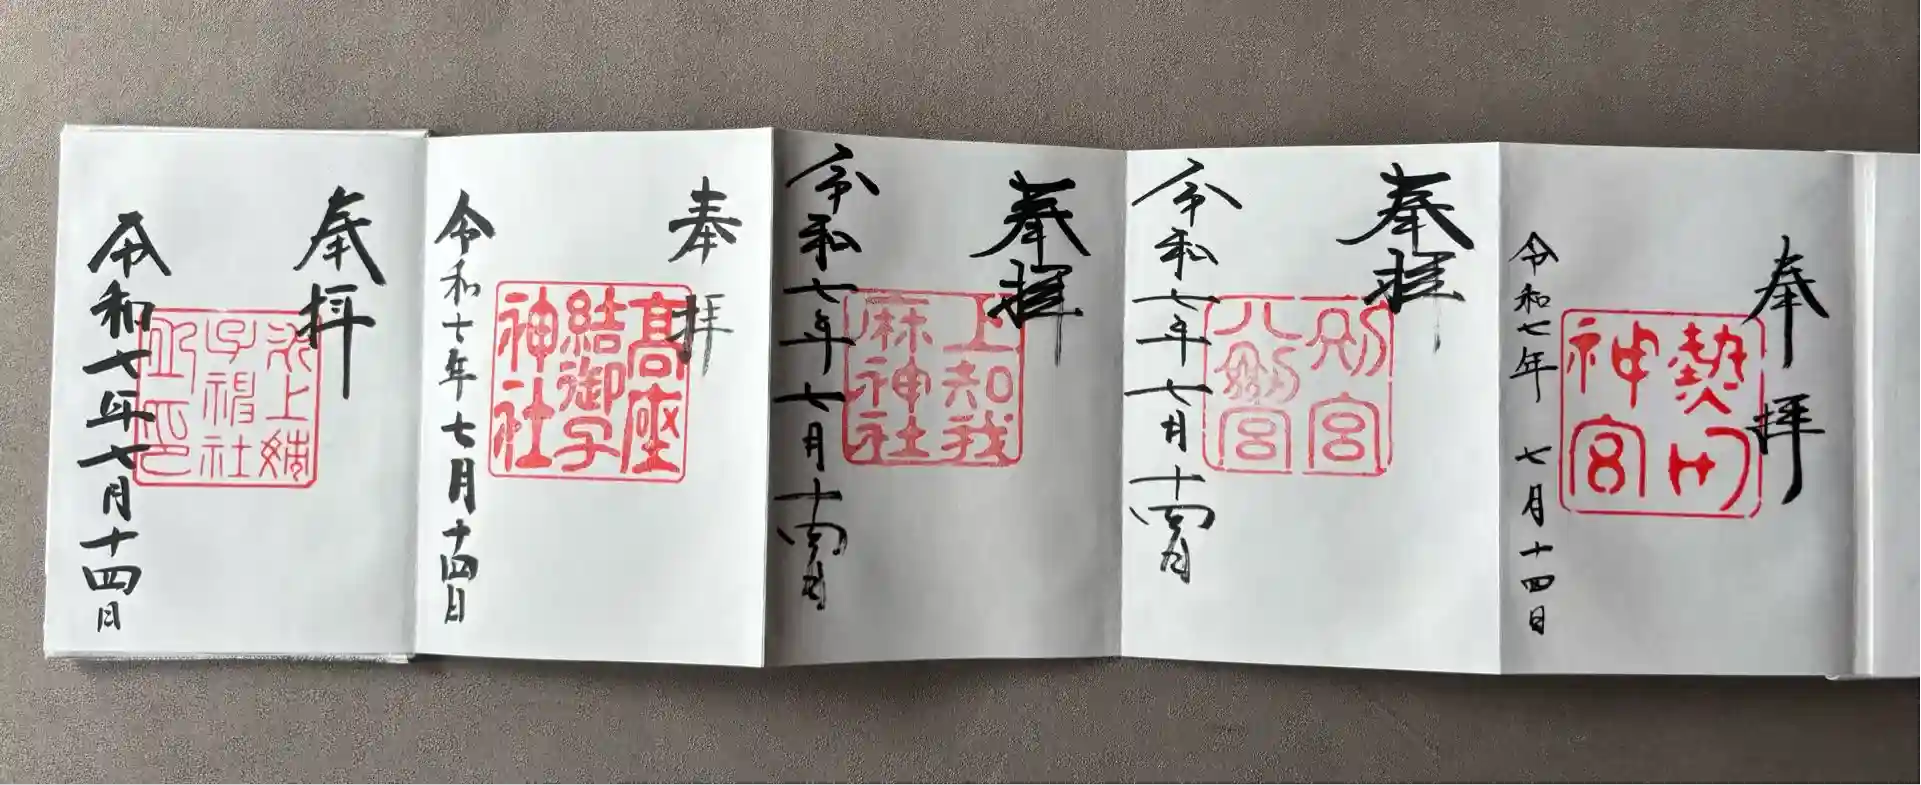 奉拝
熱田
神宮
令和七年 七月十四日
奉拝
別宮
八剱宮
令和七年七月十四日
奉拝
上知我
麻神社
令和七年七月十四日
奉拝
髙座
結御子
神社
令和七年七月十四日
奉拝
氷上姉
子神社
之印
令和七年七月十四日